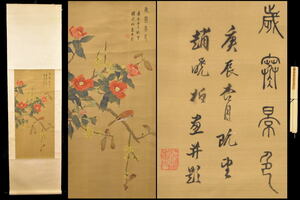 歲寒景色
庚辰春月既望
趙曉柏畫并題